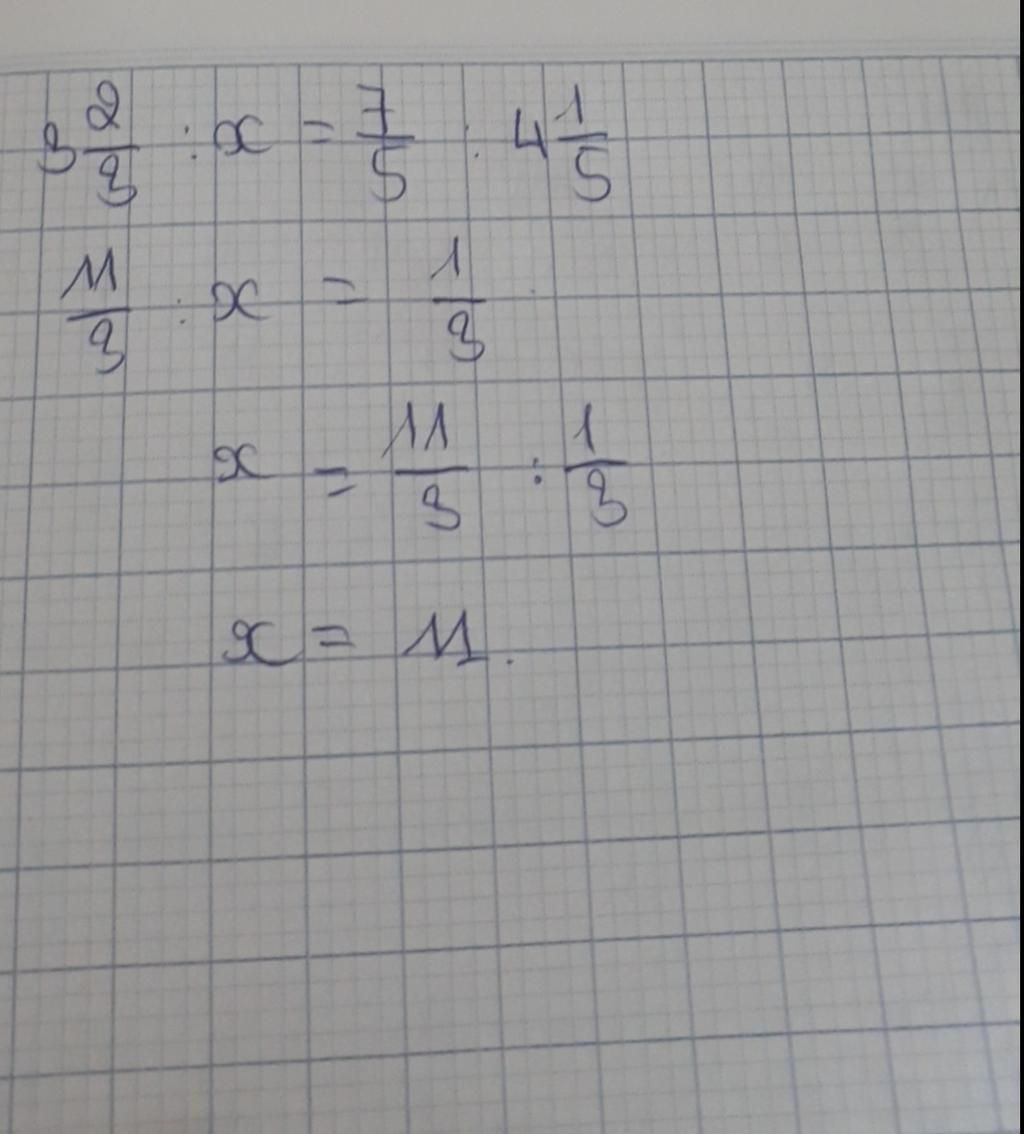 3 2/3 : x = 7/5 : 4 1/5
11/3 : x = 1/3
x = 11/3 : 1/3
x = 11.